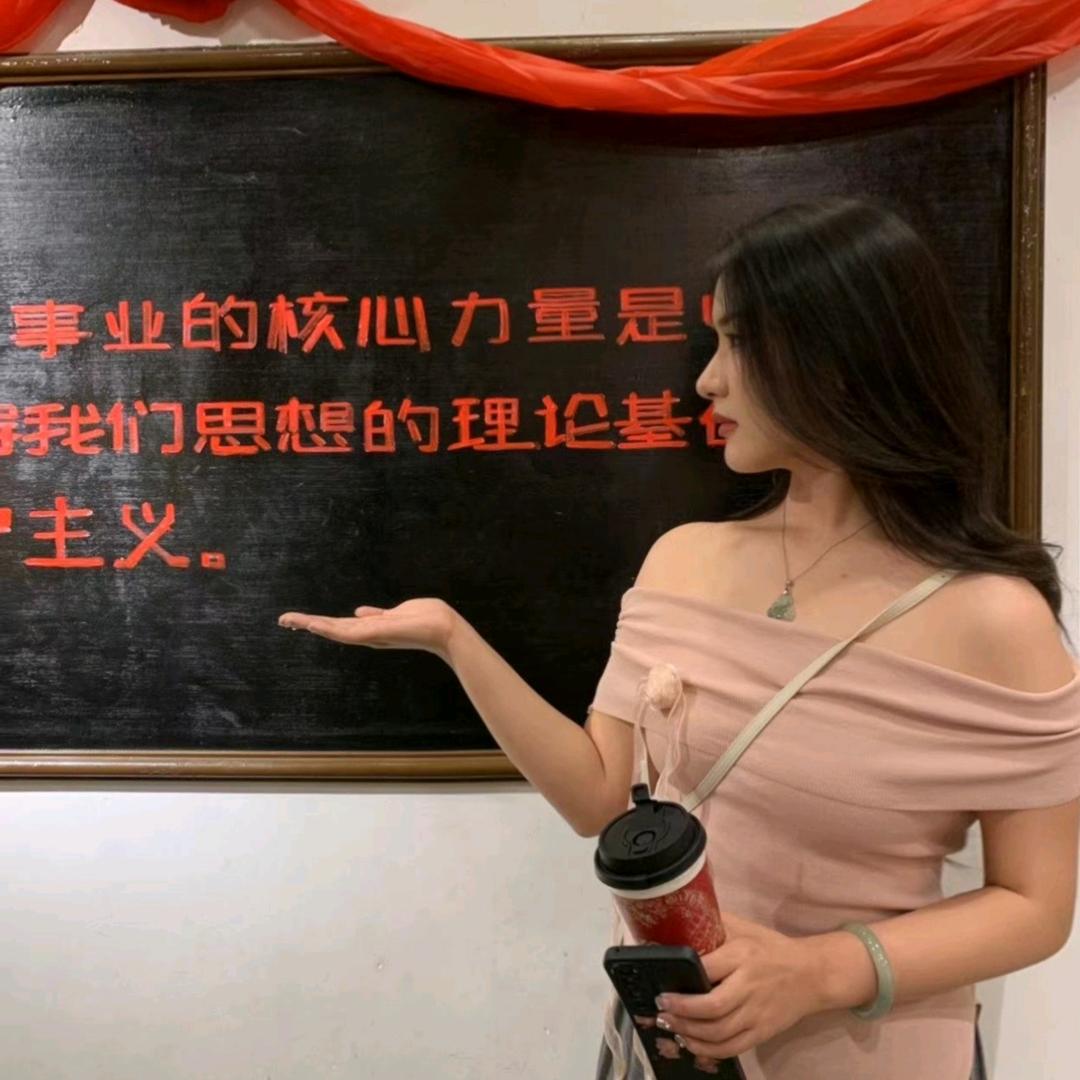 事业的核心力量是
我们思想的理论基
主义。